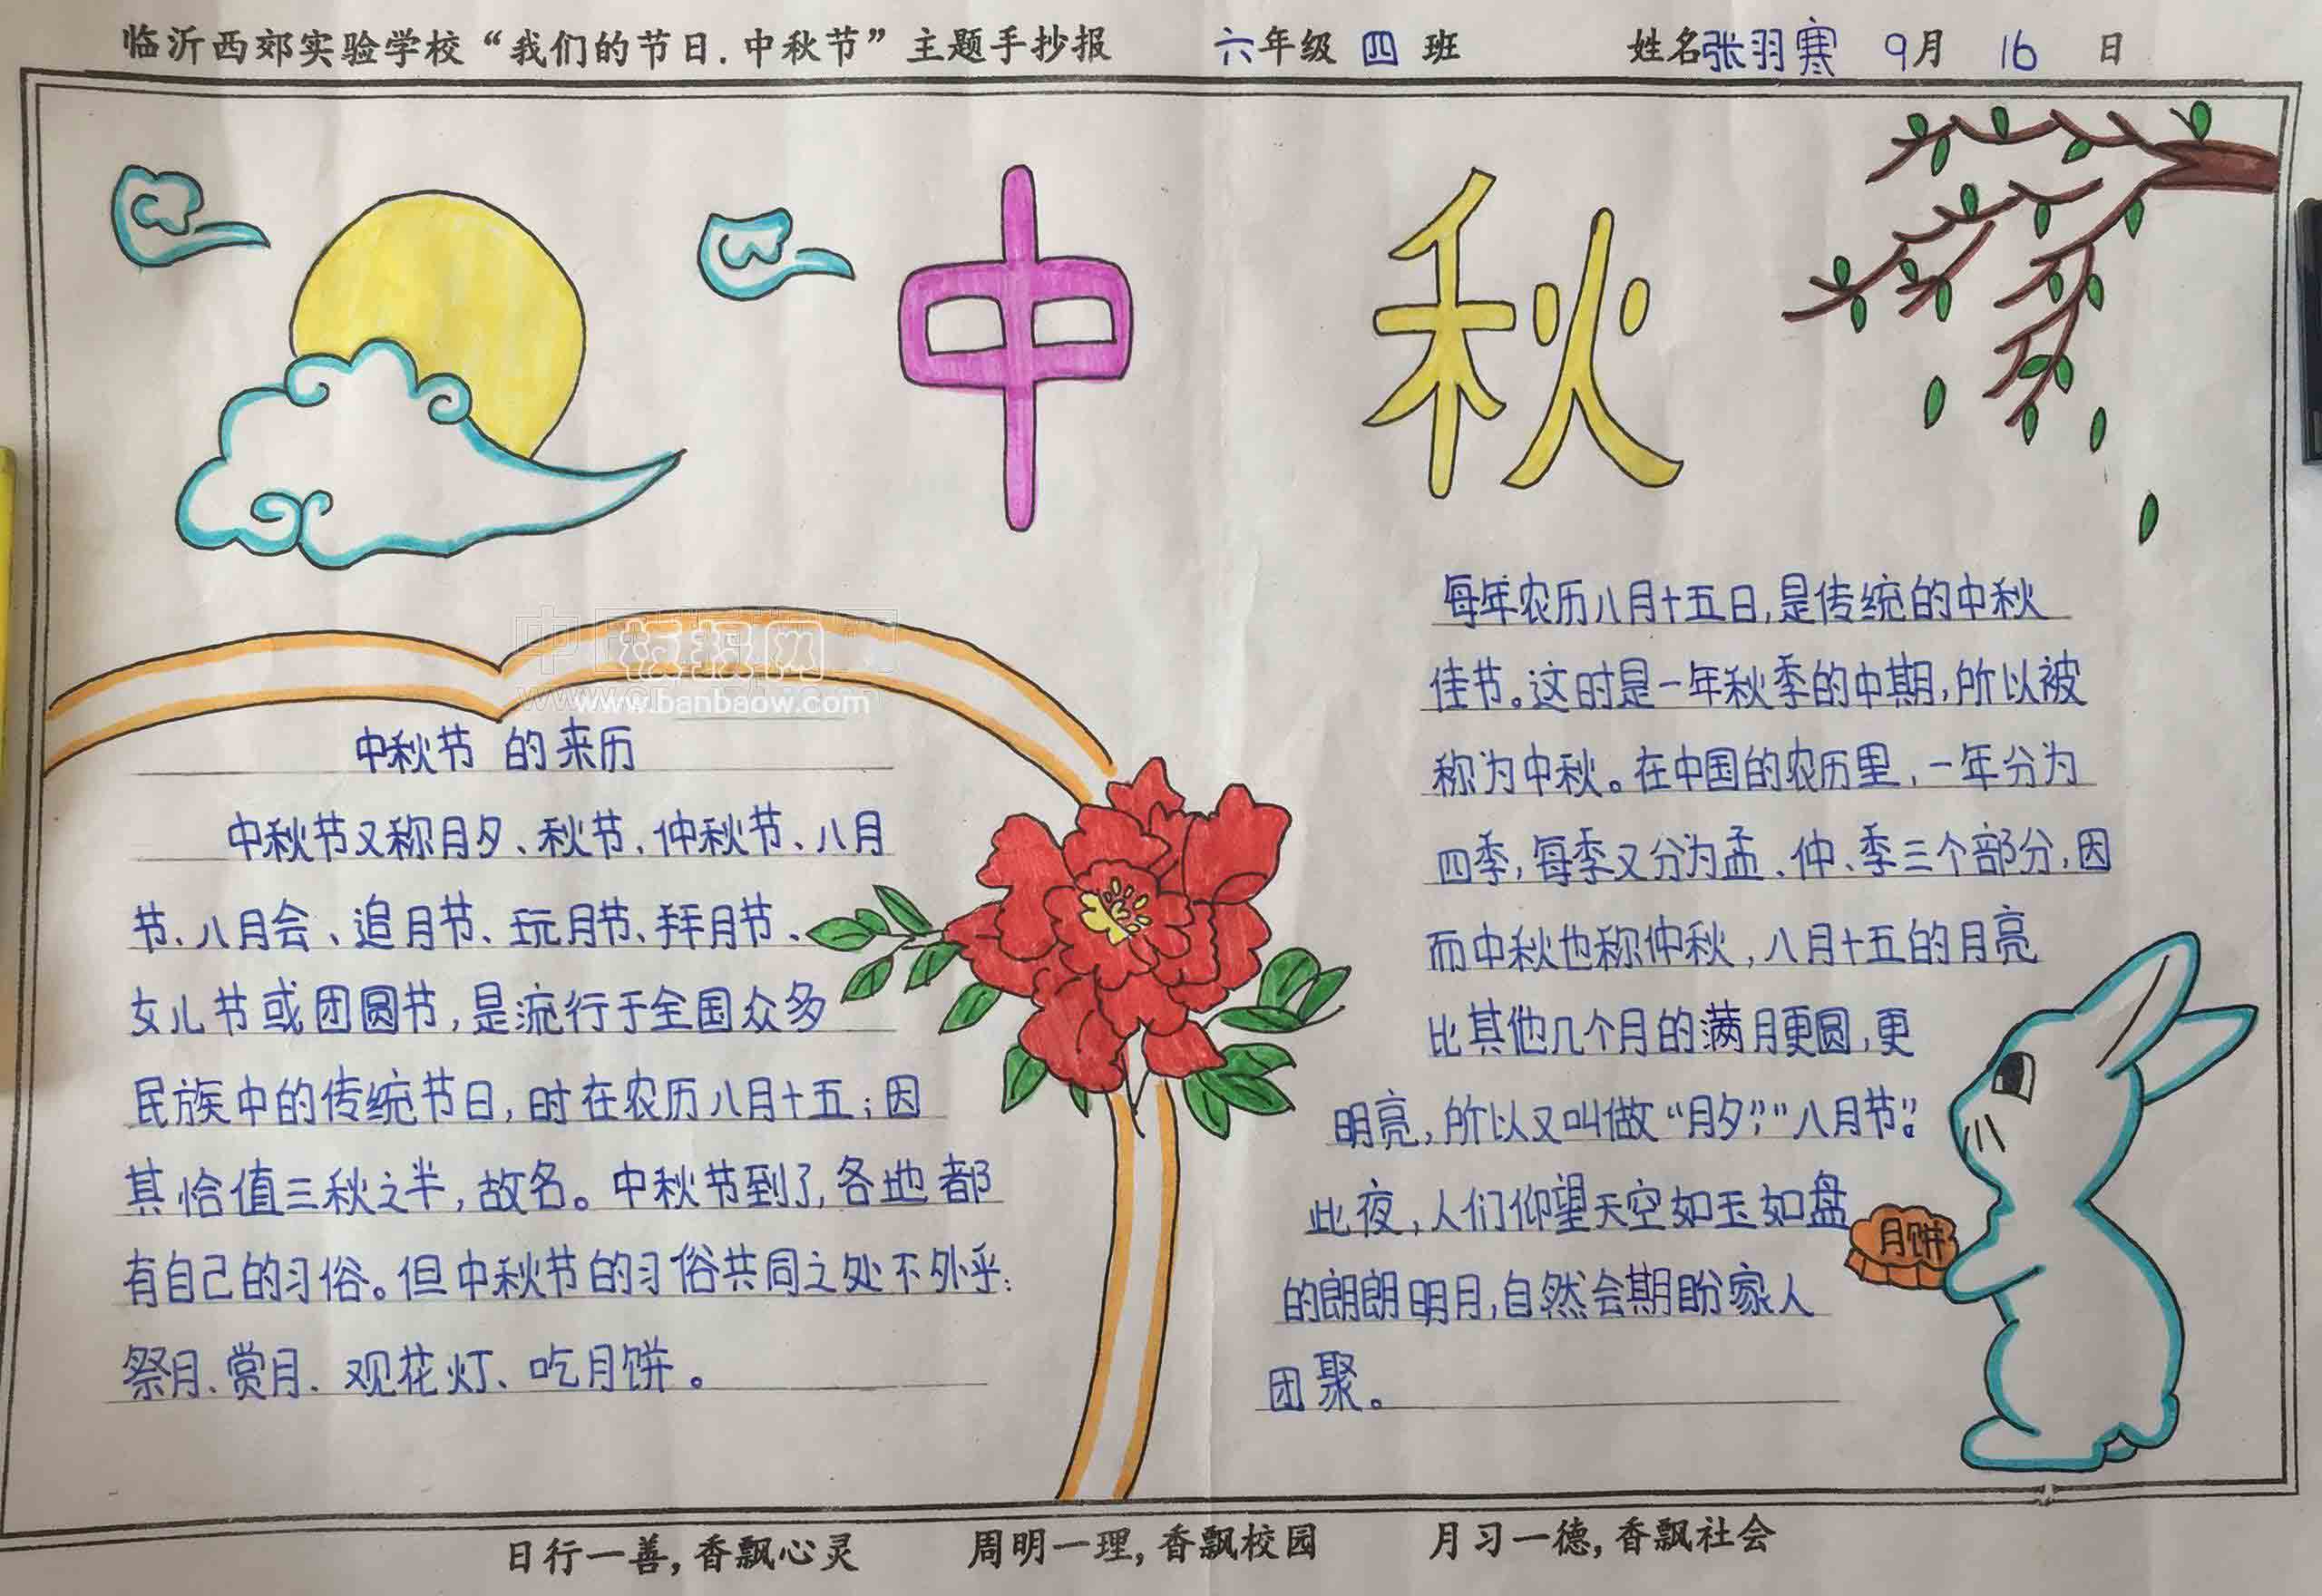 临沂西郊实验学校“我们的节日.中秋节”主题手抄报 六年级 四 班 姓名张羽寒 9月 16 日
中 秋
中国板报网
www.banbaow.com
中秋节 的来历
中秋节又称月夕、秋节、仲秋节、八月
节、八月会、追月节、玩月节、拜月节、
女儿节或团圆节,是流行于全国众多
民族中的传统节日,时在农历八月十五;因
其恰值三秋之半,故名。中秋节到了,各地都
有自己的习俗。但中秋节的习俗共同之处不外乎:
祭月、赏月、观花灯、吃月饼。
每年农历八月十五日,是传统的中秋
佳节。这时是一年秋季的中期,所以被
称为中秋。在中国的农历里,一年分为
四季,每季又分为孟、仲、季三个部分,因
而中秋也称仲秋,八月十五的月亮
比其他几个月的满月更圆,更
明亮,所以又叫做“月夕”,“八月节”。
此夜,人们仰望天空如玉如盘
的朗朗明月,自然会期盼家人
团聚。
月饼
日行一善,香飘心灵 周明一理,香飘校园 月习一德,香飘社会